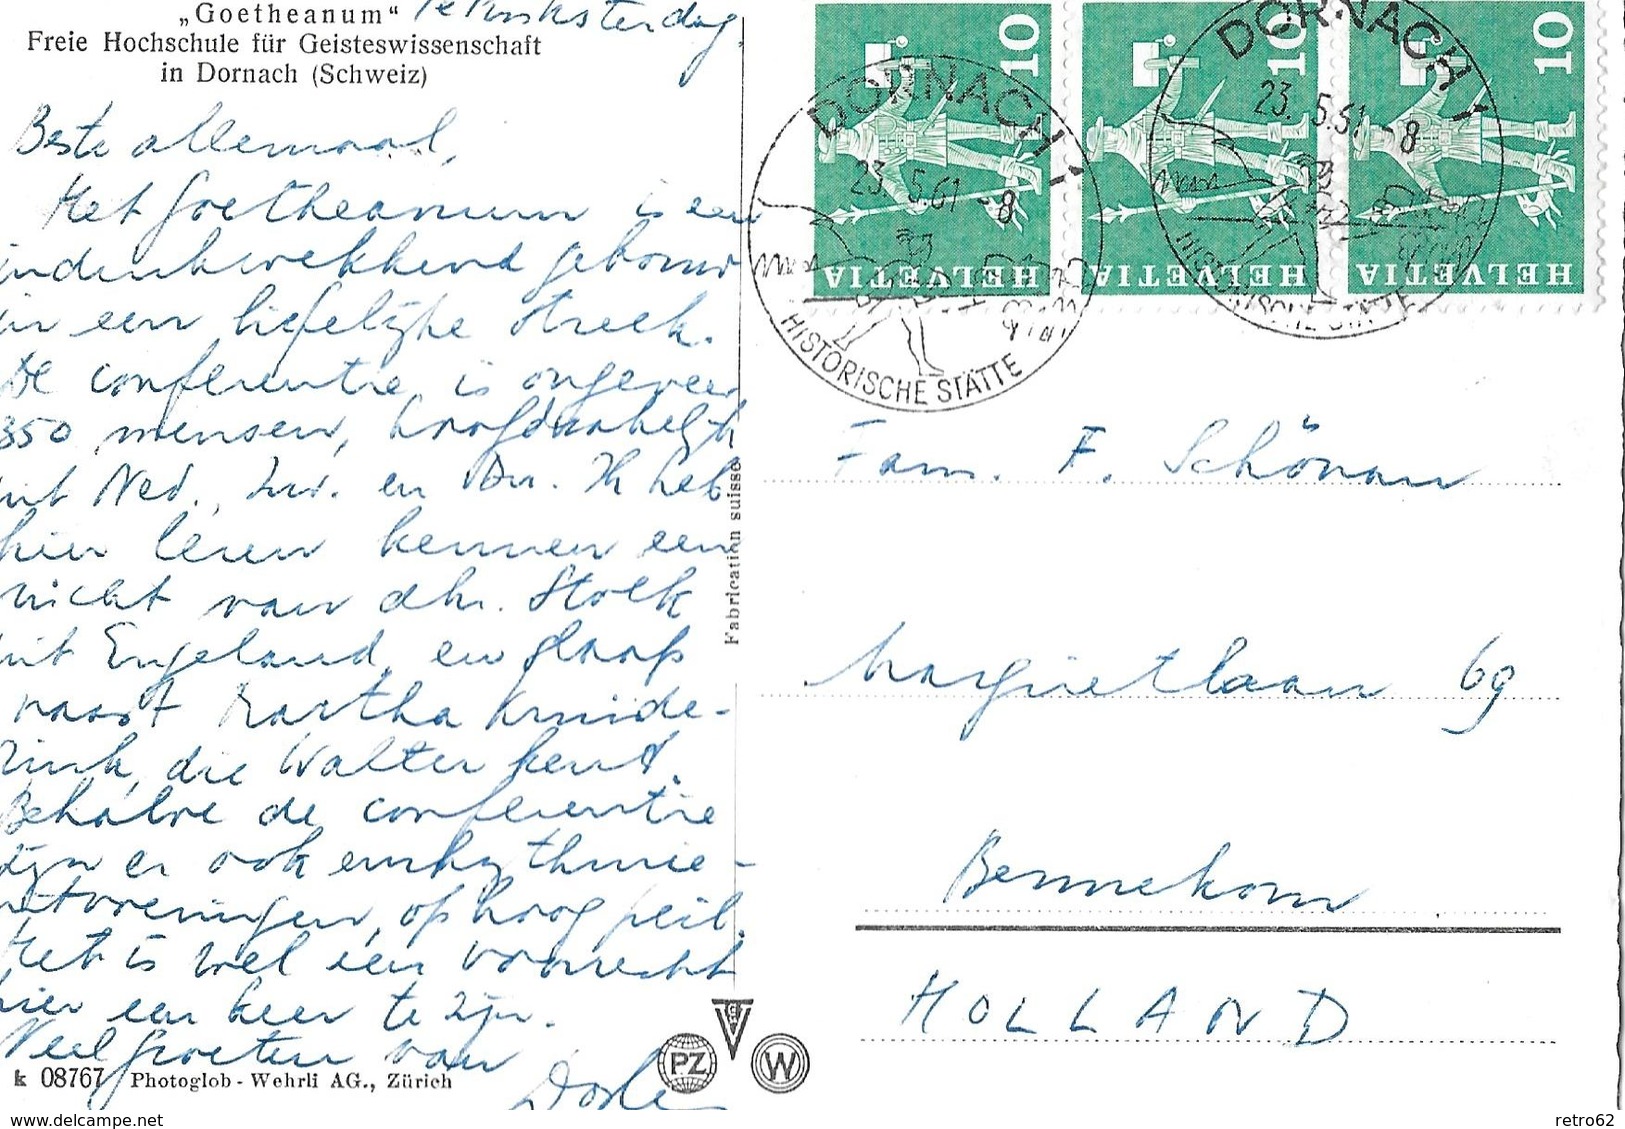 „Goetheanum“ 1e Pinksterdag.
Freie Hochschule für Geisteswissenschaft
in Dornach (Schweiz)
Beste allemaal,
Het Goetheanum is een
indrukwekkend gebouw
in een liefelijke streek.
De conferentie is ongeveer
350 mensen, hoofdzakelijk
uit Ned., Zw. en Du. Ik heb
hier leren kennen een
nicht van dhr. Stolk
uit Engeland, en slaap
naast Martha
die Walter kent.
Behalve de conferentie
zijn er ook eurhythmie-
uitvoeringen, op hoog peil.
Het is wel een voorrecht
hier een keer te zijn.
Veel groeten van
k 08767 Photoglob-Wehrli AG., Zürich
Fabrication suisse
PZ
W
10 HELVETIA
10 HELVETIA
10 HELVETIA
DORNACH 1
23.5.61-8
HISTORISCHE STÄTTE
DORNACH 1
23.5.61-8
HISTORISCHE STÄTTE
Fam. F. Schönau
Margrietlaan 69
Bennekom
HOLLAND
delcampe.net
retro62